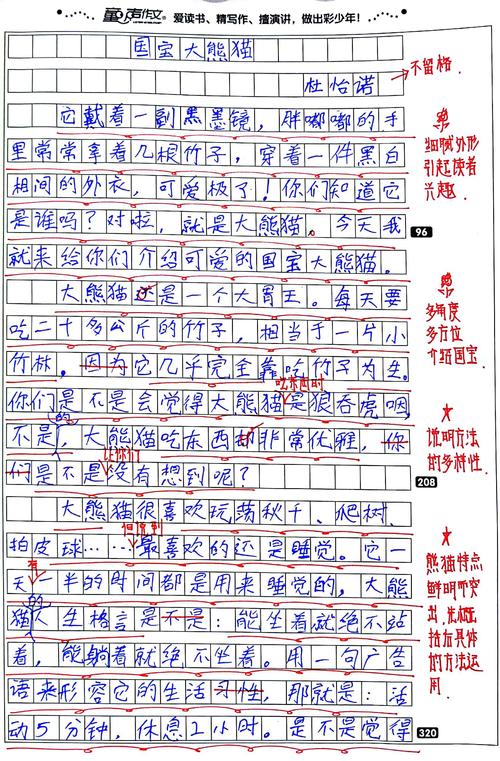 童声作文 爱读书、精写作、擅演讲,做出彩少年!
国宝大熊猫
杜怡诺
不留格
它戴着一副黑墨镜,胖嘟嘟的手
里常常拿着几根竹子,穿着一件黑白
相间的外衣,可爱极了!你们知道它
是谁吗?对啦,就是大熊猫。今天我
96
就来给你们介绍可爱的国宝大熊猫。
细腻外形
引起读者
兴趣
大熊猫还是一个大胃王。每天要
吃二十多公斤的竹子,相当于一片小
竹林。因为它几乎完全靠吃竹子为生。
吃东西时
你们是不是会觉得大熊猫是狼吞虎咽,
的
不是,大熊猫吃东西却非常优雅,你
让你们
们是不是没有想到呢?
208
多角度
多方位
介绍国宝
说明方法
的多样性
大熊猫很喜欢玩荡秋千、爬树、
但说到
拍皮球……最喜欢的还是睡觉。它一
有
天一半的时间都是用来睡觉的,大熊
的
猫人生格言是不是:能坐着就绝不站
着,能躺着就绝不坐着。用一句广告
语来形容它的生活习性,那就是:活
动5分钟,休息2小时。是不是觉得
320
熊猫特点
鲜明而突
出,先概
括后具体
的方法运
用